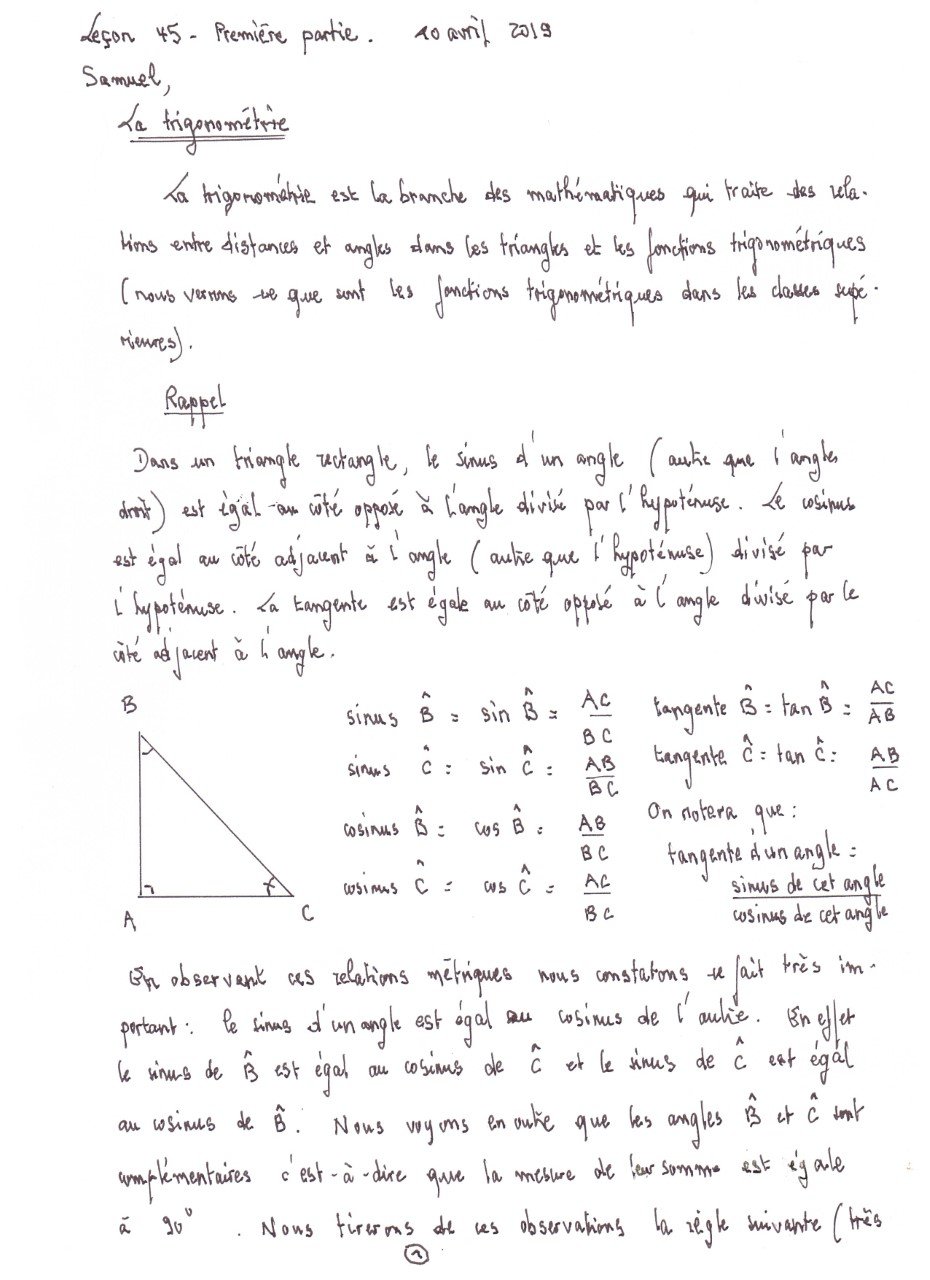 Leçon 45 - Première partie. 10 avril 2019
Samuel,
La trigonométrie
La trigonométrie est la branche des mathématiques qui traite des rela-
tions entre distances et angles dans les triangles et les fonctions trigonométriques
(nous verrons ce que sont les fonctions trigonométriques dans les classes supé-
rieures).
Rappel
Dans un triangle rectangle, le sinus d'un angle (autre que l'angles
droit) est égal au côté opposé à l'angle divisé par l'hypoténuse. Le cosinus
est égal au côté adjacent à l'angle (autre que l'hypoténuse) divisé par
l'hypoténuse. La tangente est égale au côté opposé à l'angle divisé par le
côté adjacent à l'angle.
B
A
C
sinus B̂ = sin B̂ = AC/BC
sinus Ĉ = sin Ĉ = AB/BC
cosinus B̂ = cos B̂ = AB/BC
cosinus Ĉ = cos Ĉ = AC/BC
tangente B̂ = tan B̂ = AC/AB
tangente Ĉ = tan Ĉ = AB/AC
On notera que :
tangente d'un angle =
sinus de cet angle
cosinus de cet angle
En observant ces relations métriques nous constatons ce fait très im-
portant : le sinus d'un angle est égal au cosinus de l'autre. En effet
le sinus de B̂ est égal au cosinus de Ĉ et le sinus de Ĉ est égal
au cosinus de B̂. Nous voyons en outre que les angles B̂ et Ĉ sont
complémentaires c'est-à-dire que la mesure de leur somme est égale
à 90°. Nous tirerons de ces observations la règle suivante (très
1